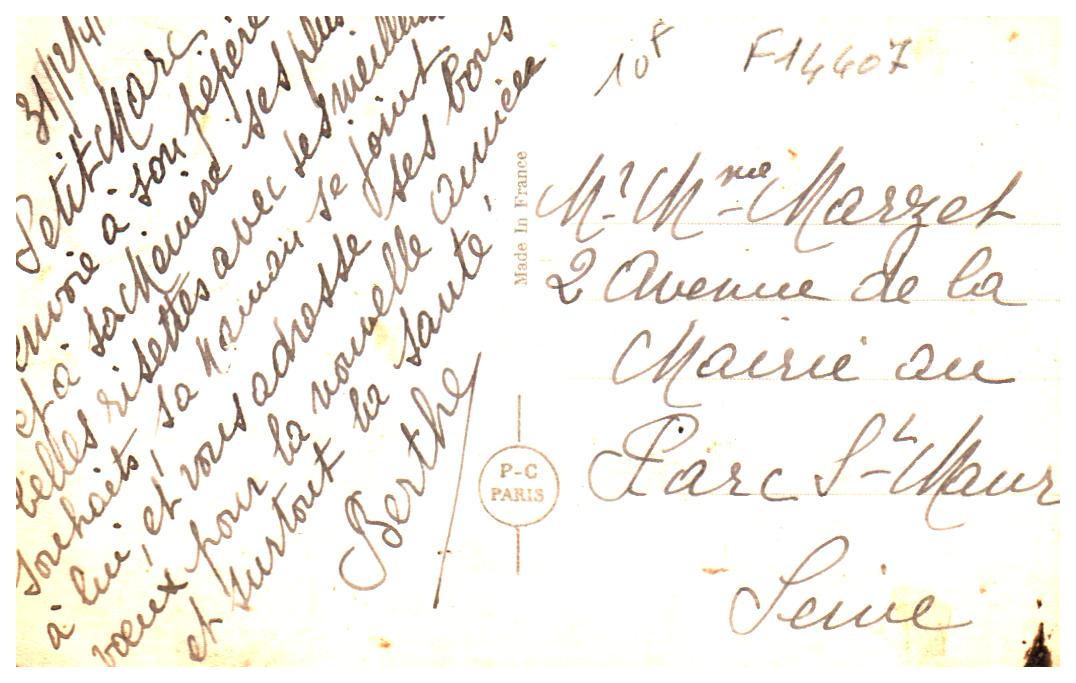 31/12/41
Petit Marc
envoie à son pépère
et à sa Mémère ses plus
belles risettes avec ses meilleurs
souhaits, sa Maman se joint
à lui, et vous adresse ses bons
vœux pour la nouvelle année
et surtout la santé,
Berthe
Made In France
P-C
PARIS
10F
F14407
Mr Mme Marzet
2 Avenue de la
Mairie au
Parc St-Maur
Seine